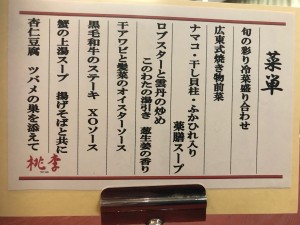 菜単
旬の彩り冷菜盛り合わせ
広東式焼き物前菜
ナマコ・干し貝柱・ふかひれ入り
薬膳スープ
ロブスターと雲丹の炒め
このわたの湯引き 葱生姜の香り
干アワビと髪菜のオイスターソース
黒毛和牛のステーキ XOソース
蟹の上湯スープ 揚げそばと共に
杏仁豆腐 ツバメの巣を添えて
桃李